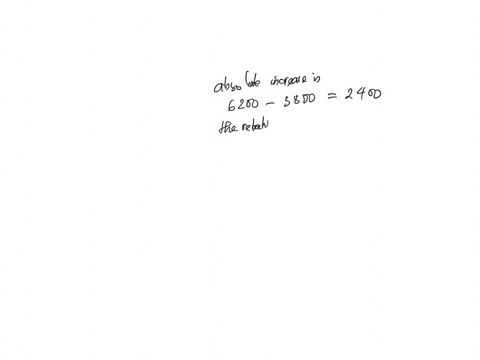 absolute increase is
6200 - 3800 = 2400
the